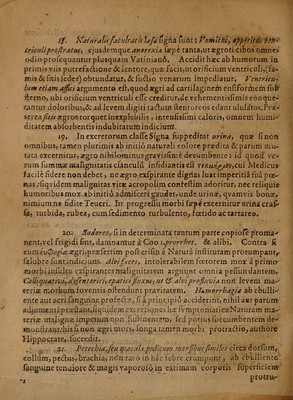 18. Naturalis facultatis læsæ signa sunt: Vomitus, appetitus ventriculi prostratus, ejusdemque Anorexia sæpè tanta, ut ægroti cibos omnes
odio prosequantur plusquam Vatiniano. Accidit hæc ab humorum in
primis viis putrefactione & lentore, quæ facit, ut orificium ventriculi, (fames & sitis sedes) obtundatur, & suctio venarum impediatur.
tum etiam affici argumento est, quod ægri ad cartilaginem ensiformem sub
sterno, ubi orificium ventriculi esse creditur, de vehementissimis conquerantur doloribus, & ad levem digiti tactum stentoreos edant ululatus.
sitis ægros torquet inexplebilis, intensissimi caloris, omnem humiditatem absorbentis indubitatum indicium.
19. In excretorum classe Signa suppeditat urina, quæ si non
omnibus, tamen plurimis ab initiò naturali colore prædita & parum mutata excernitur, ægro nihilominus gravissimè decumbente: id quod verum summæ malignitatis clanculi insidiantis est
facilè fidere non debet, ne ægro exspirante dignas luat imperitiæ suæ pœnas: siquidem malignitas vitæ acropolim confestim adoritur, nec reliquis
humoribus mox ab initiò admisceri gaudet, unde urinæ, quamvis bonæ,
nimium ne fidite Teucri. In progressu morbi sæpè excernitur urina crassa, turbida, rubea, cum sedimento turbulento, fœtido ac tartareo.
20. Sudores, si in determinata tantum parte copiosè promanent, vel frigidi sint, damnantur à Coo 1. prorrhet. & alibi. Contra si
cum ægri, præsertim posterisin à Naturâ institutam prorumpant,
salubres sunt indicium. Alvi feces, intolerabilem fœtorem mox à primo
morbi insultu exspirantes malignitatem arguunt omnia pessundantem.
non levem materiæ morborum foventis ostendunt pravitatem. Hæmorrhagia ab ebulliente aut acri sanguine profecta, si à principiò acciderit, nihil aut parum
adjumenti præstat;
materiæ malignæ impetum non sustinentem, sed potius succumbentem demonstrant: his si non ægri mors, longa tamen morbi protractio, authore
Hippocrate, succedit.
21. Petechiæ, seu maculæ pulicum morsibus similes circa dorsum,
collum, pectus, brachia, nen raro in ipse febre erumpunt, ab ebulliente
sanguine tenuiore & magis vaporoso in extimam corporis superficiem
protru-